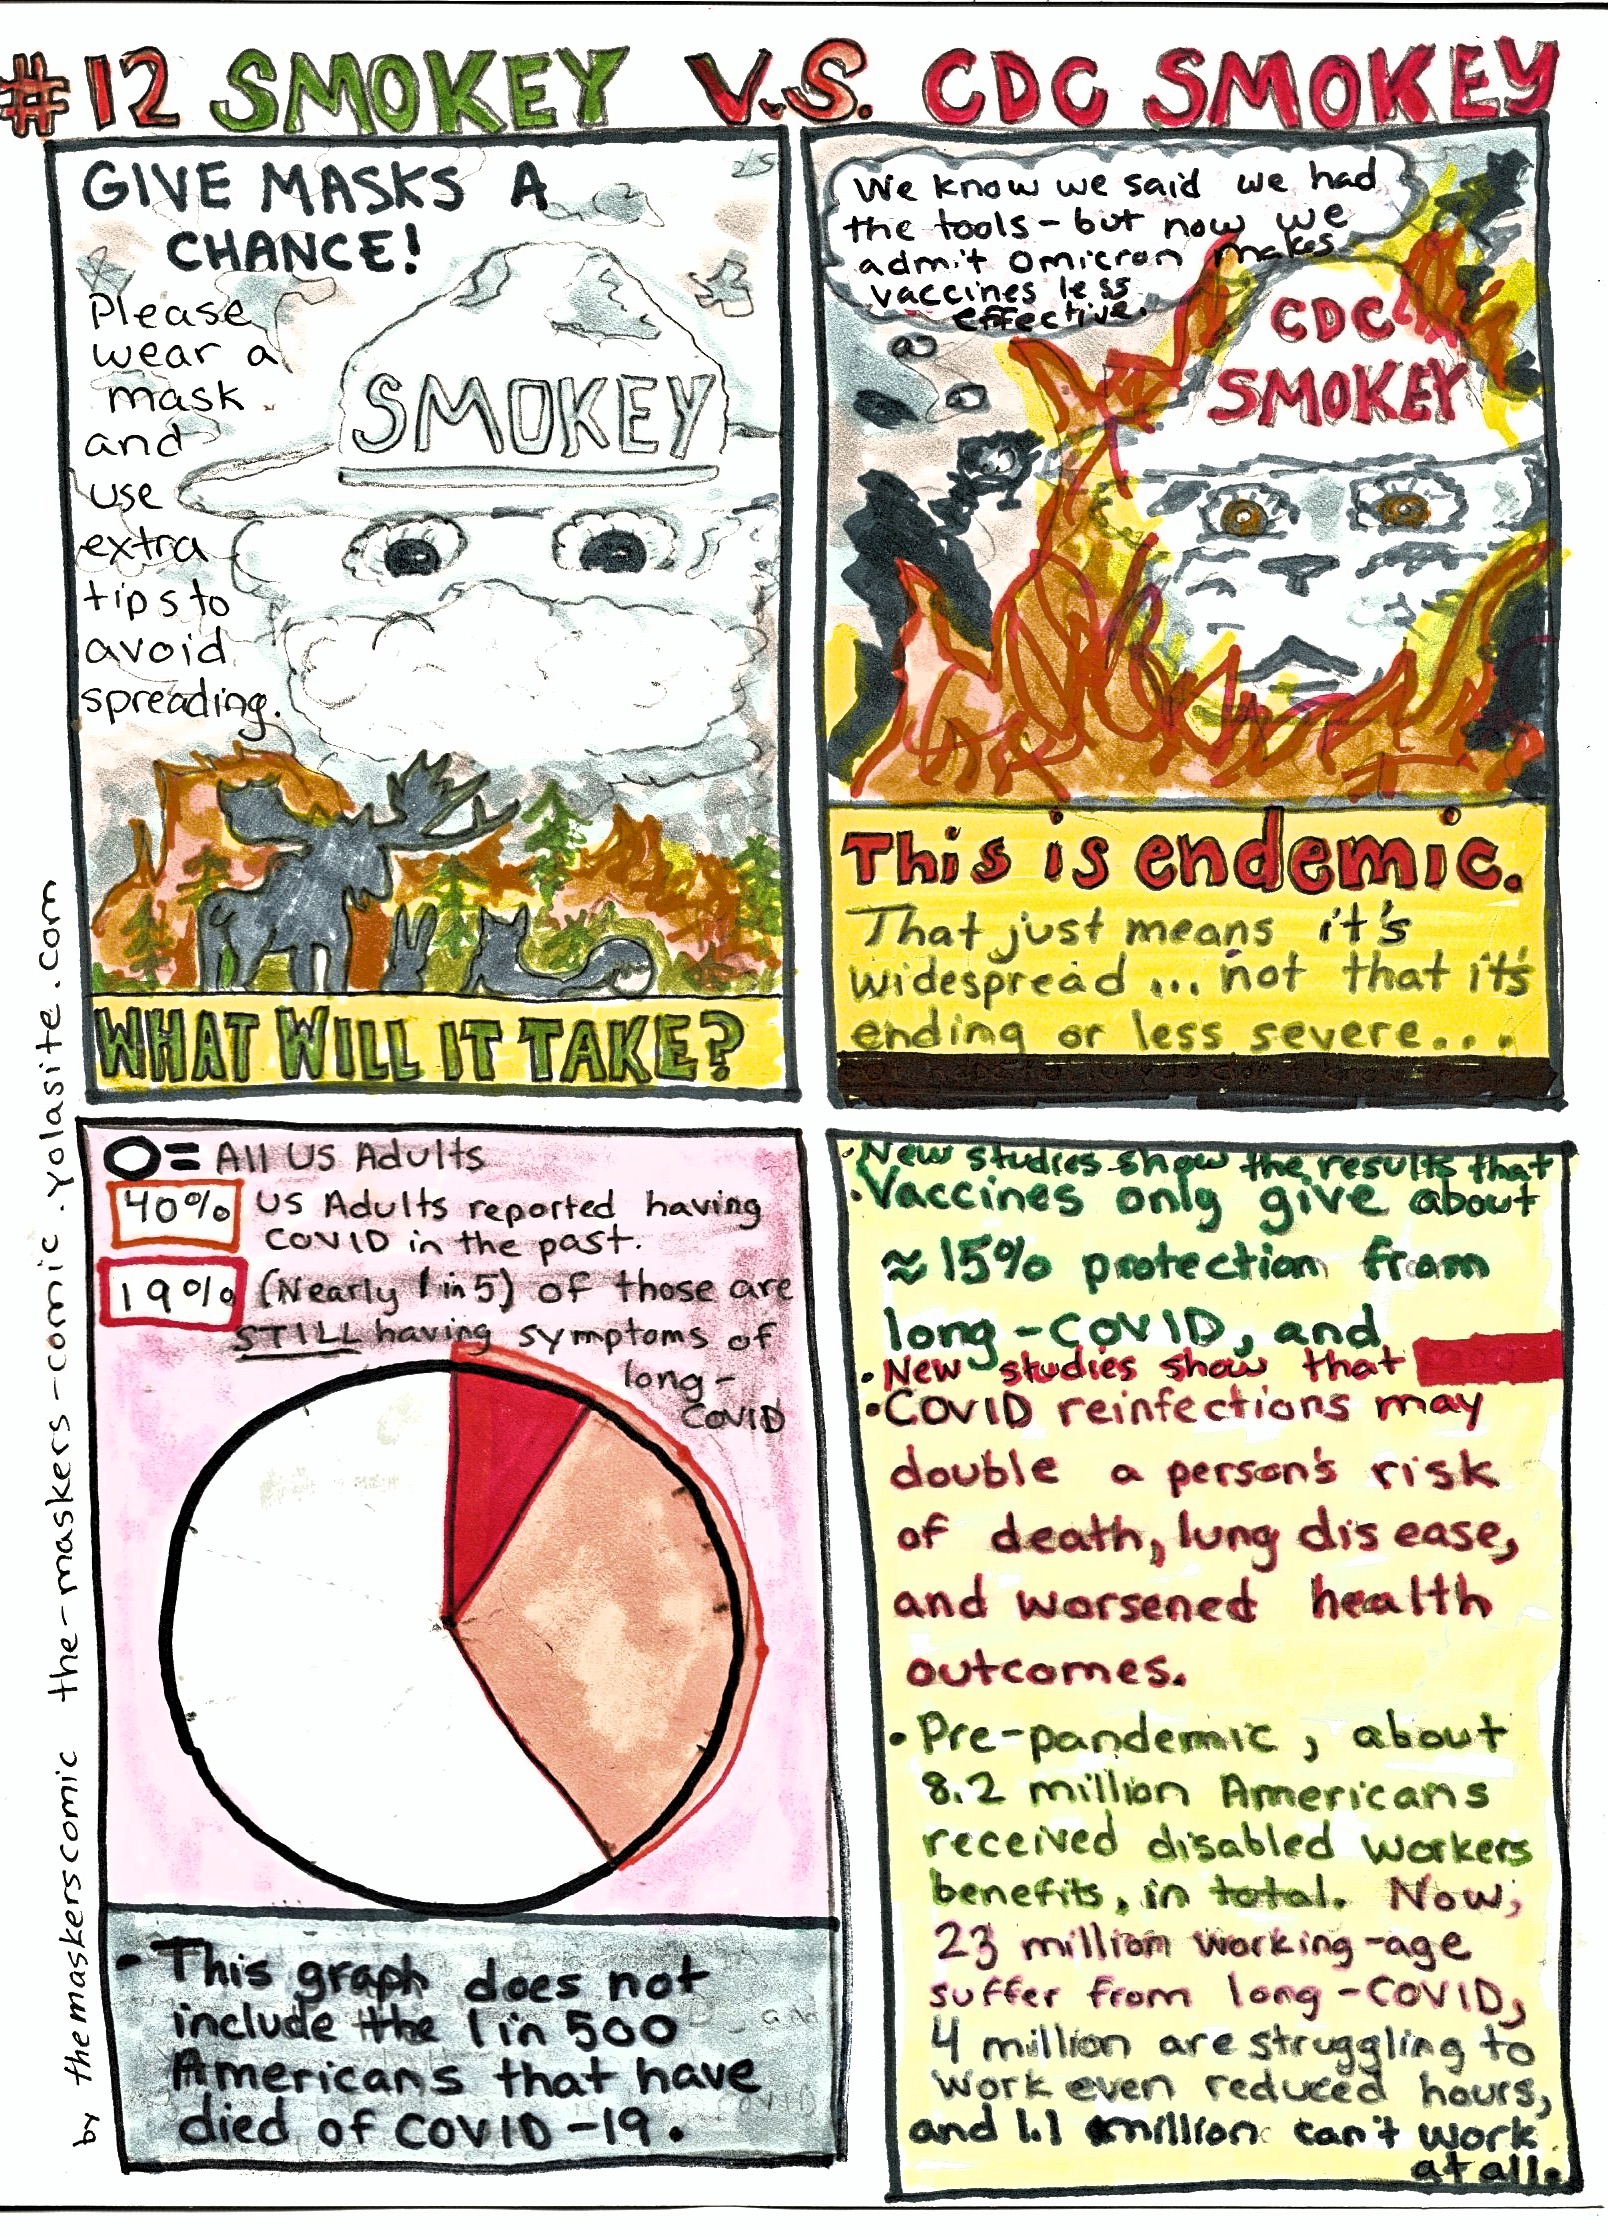 #12 SMOKEY V.S. CDC SMOKEY
GIVE MASKS A
CHANCE!
Please
wear a
mask
and
use
extra
tips to
avoid
spreading.
SMOKEY
WHAT WILL IT TAKE?
We know we said we had
the tools - but now we
admit omicron makes
vaccines less
effective.
CDC
SMOKEY
This is endemic.
That just means it's
widespread ... not that it's
ending or less severe...
O= All US Adults
40% US Adults reported having
COVID in the past.
19% (Nearly 1 in 5) of those are
STILL having symptoms of
long-
COVID
• This graph does not
include the 1 in 500
Americans that have
died of COVID-19.
• New studies show the results that
• Vaccines only give about
≈ 15% protection from
long-COVID, and
• New studies show that
• COVID reinfections may
double a person's risk
of death, lung disease,
and worsened health
outcomes.
• Pre-pandemic, about
8.2 million Americans
received disabled workers
benefits, in total. Now,
23 million working-age
suffer from long-COVID,
4 million are struggling to
work even reduced hours,
and 1.1 million can't work
at all.
by themaskerscomic the-maskers-comic.yolasite.com